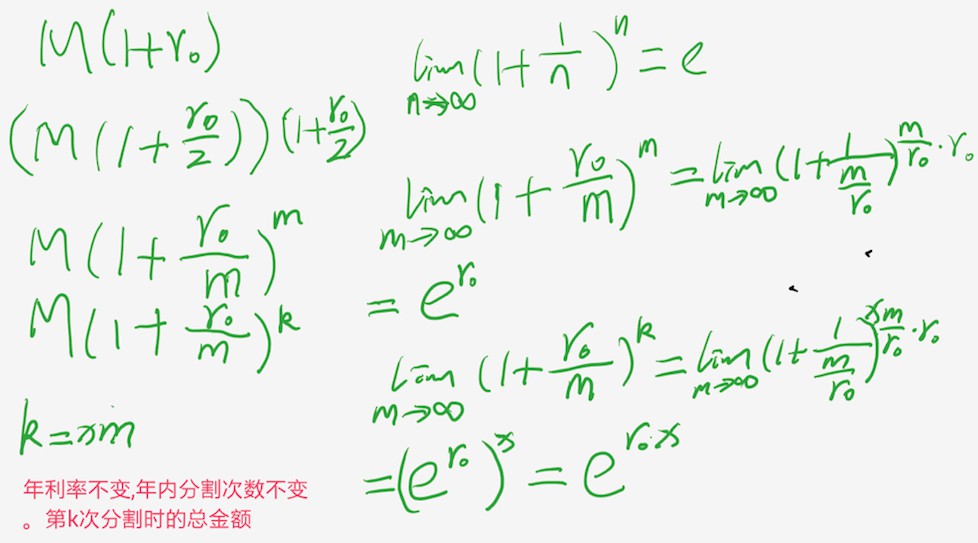 M(1+r₀)
(M(1+r₀/2))(1+r₀/2)
M(1+r₀/m)^m
M(1+r₀/m)^k
k=xm
年利率不变,年内分割次数不变
。第k次分割时的总金额
lim n→∞ (1+1/n)^n = e
lim m→∞ (1+r₀/m)^m = lim m→∞ (1+1/(m/r₀))^(m/r₀·r₀)
= e^r₀
lim m→∞ (1+r₀/m)^k = lim m→∞ (1+1/(m/r₀))^(xm/r₀·r₀)
=(e^r₀)^x = e^(r₀·x)